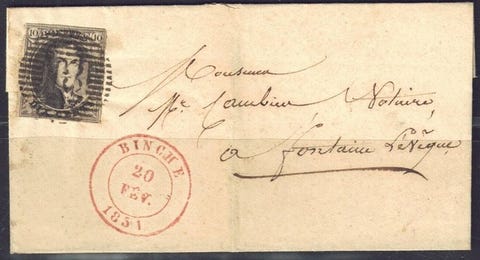 10 10
Monsieur
Mr. Cambier Notaire,
a fontaine Levêque
BINCHE
20
FÉV.
1851